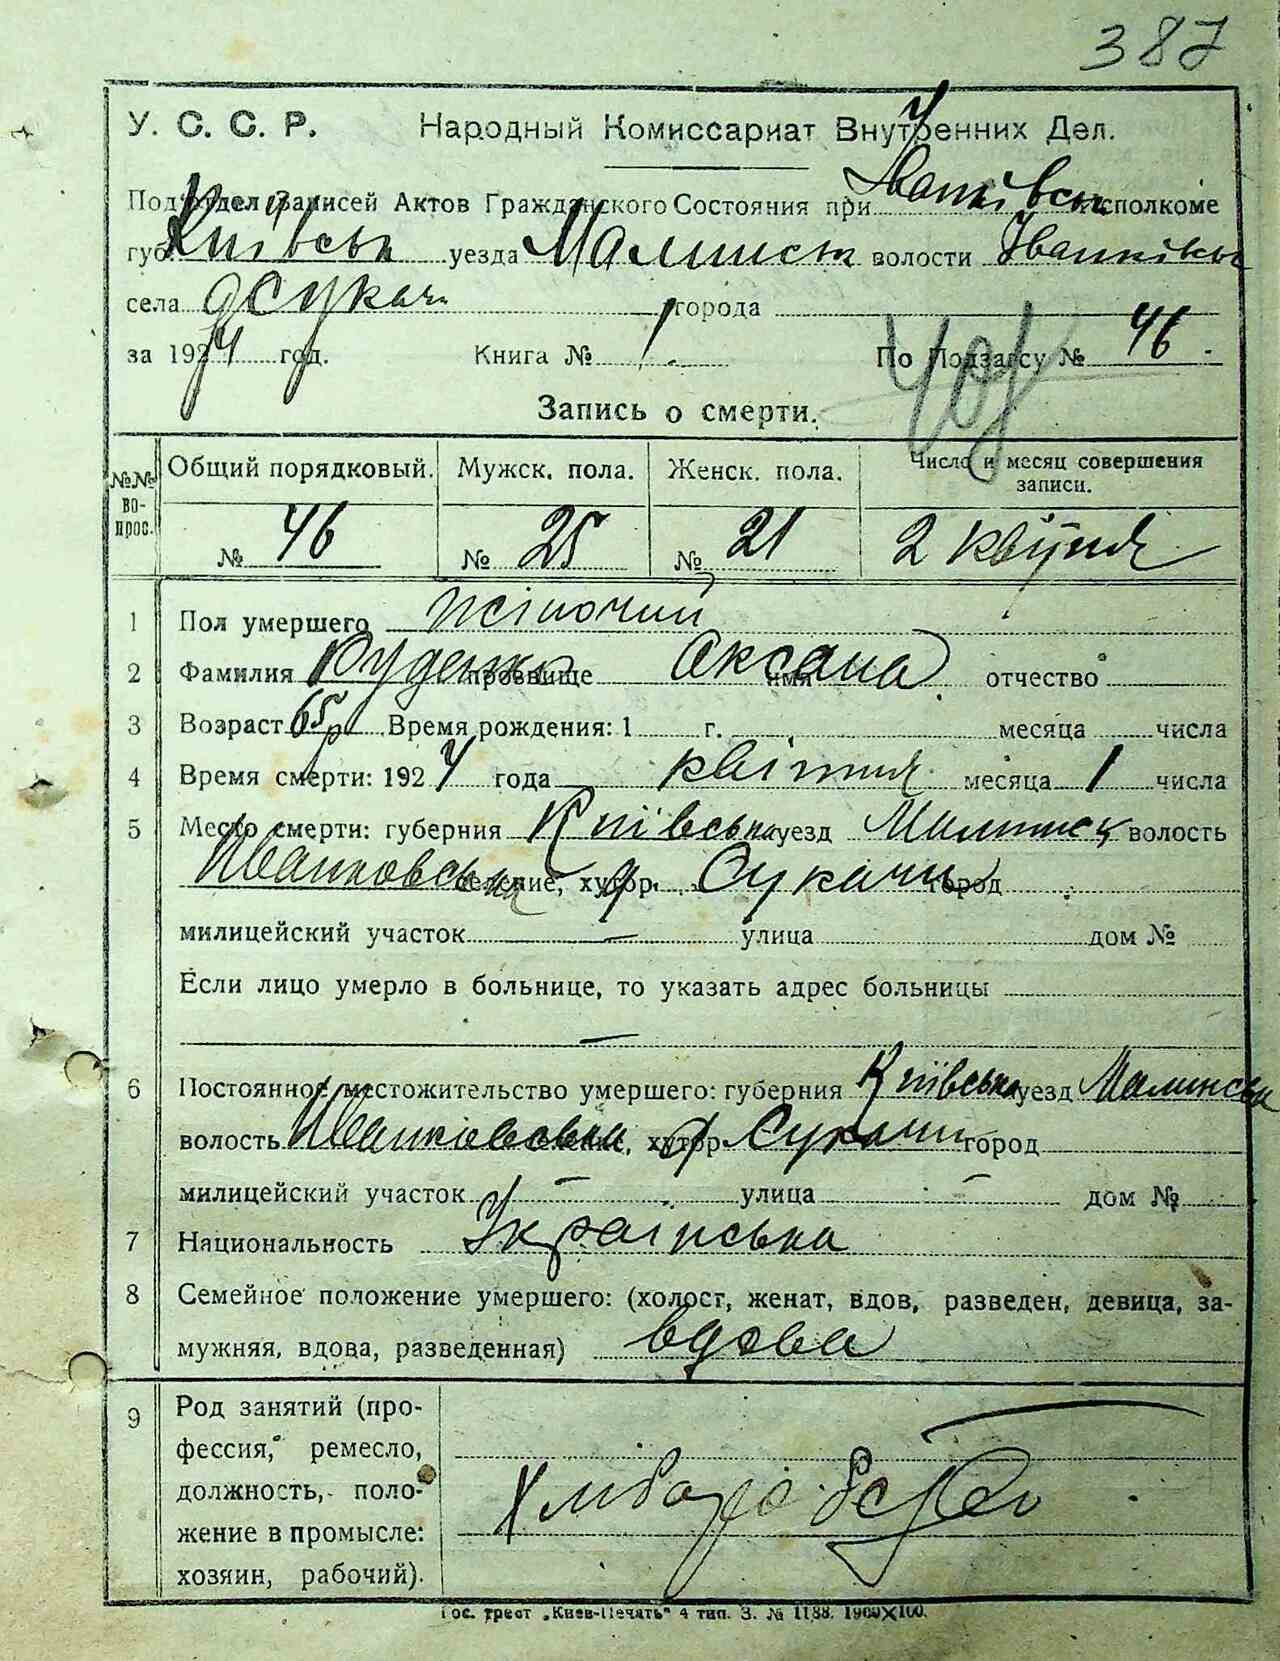 387
У. С. С. Р. Народный Комиссариат Внутренних Дел.
Подотдел Записей Актов Гражданского Состояния при Іванківськ исполкоме
губ. Київськ уезда Малинск волости Іванківськ
села д Сукачі города
за 1924 год. Книга № 1. По Подзагсу № 46.
Запись о смерти.
№№ вопрос. Общий порядковый. Мужск. пола. Женск. пола. Число и месяц совершения записи.
№ 46 № 25 № 21 2 квітня
1 Пол умершего жіночий
2 Фамилия Руденко прозвище имя Оксана отчество
3 Возраст 65 р Время рождения: 1 г. месяца числа
4 Время смерти: 1924 года квітня месяца 1 числа
5 Место смерти: губерния Київська уезд Малинск волость
Иванковська селение, хутор д. Сукачи город
милицейский участок — улица дом №
Если лицо умерло в больнице, то указать адрес больницы
—
6 Постоянное местожительство умершего: губерния Київська уезд Малинськ
волость Иванківська селение, хутор д Сукачи город
милицейский участок — улица — дом №
7 Национальность Українська
8 Семейное положение умершего: (холост, женат, вдов, разведен, девица, за-
мужняя, вдова, разведенная) вдова
9 Род занятий (про-
фессия, ремесло,
должность, поло-
жение в промысле:
хозяин, рабочий).
Хлиборобство
Гос. трест „Киев-Печать" 4 тип. З. № 1188. 1900×100.